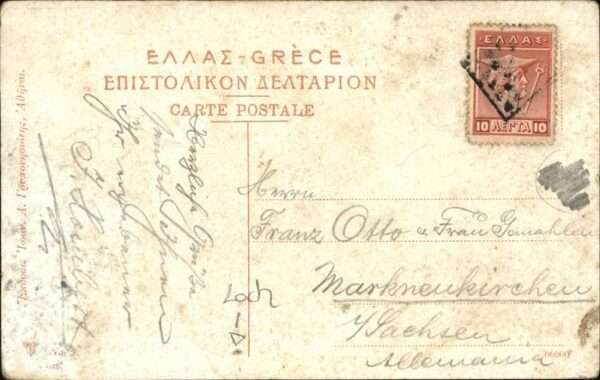 ΕΛΛΑΣ-GRÈCE
ΕΠΙΣΤΟΛΙΚΟΝ ΔΕΛΤΑΡΙΟΝ
CARTE POSTALE
ΕΛΛΑΣ
10 ΛΕΠΤΑ 10
Herzliche Grüße
sendet Ihnen
Ihr
Herrn
Franz Otto & Frau Gemahlin
Markneukirchen
i/Sachsen
Allemania